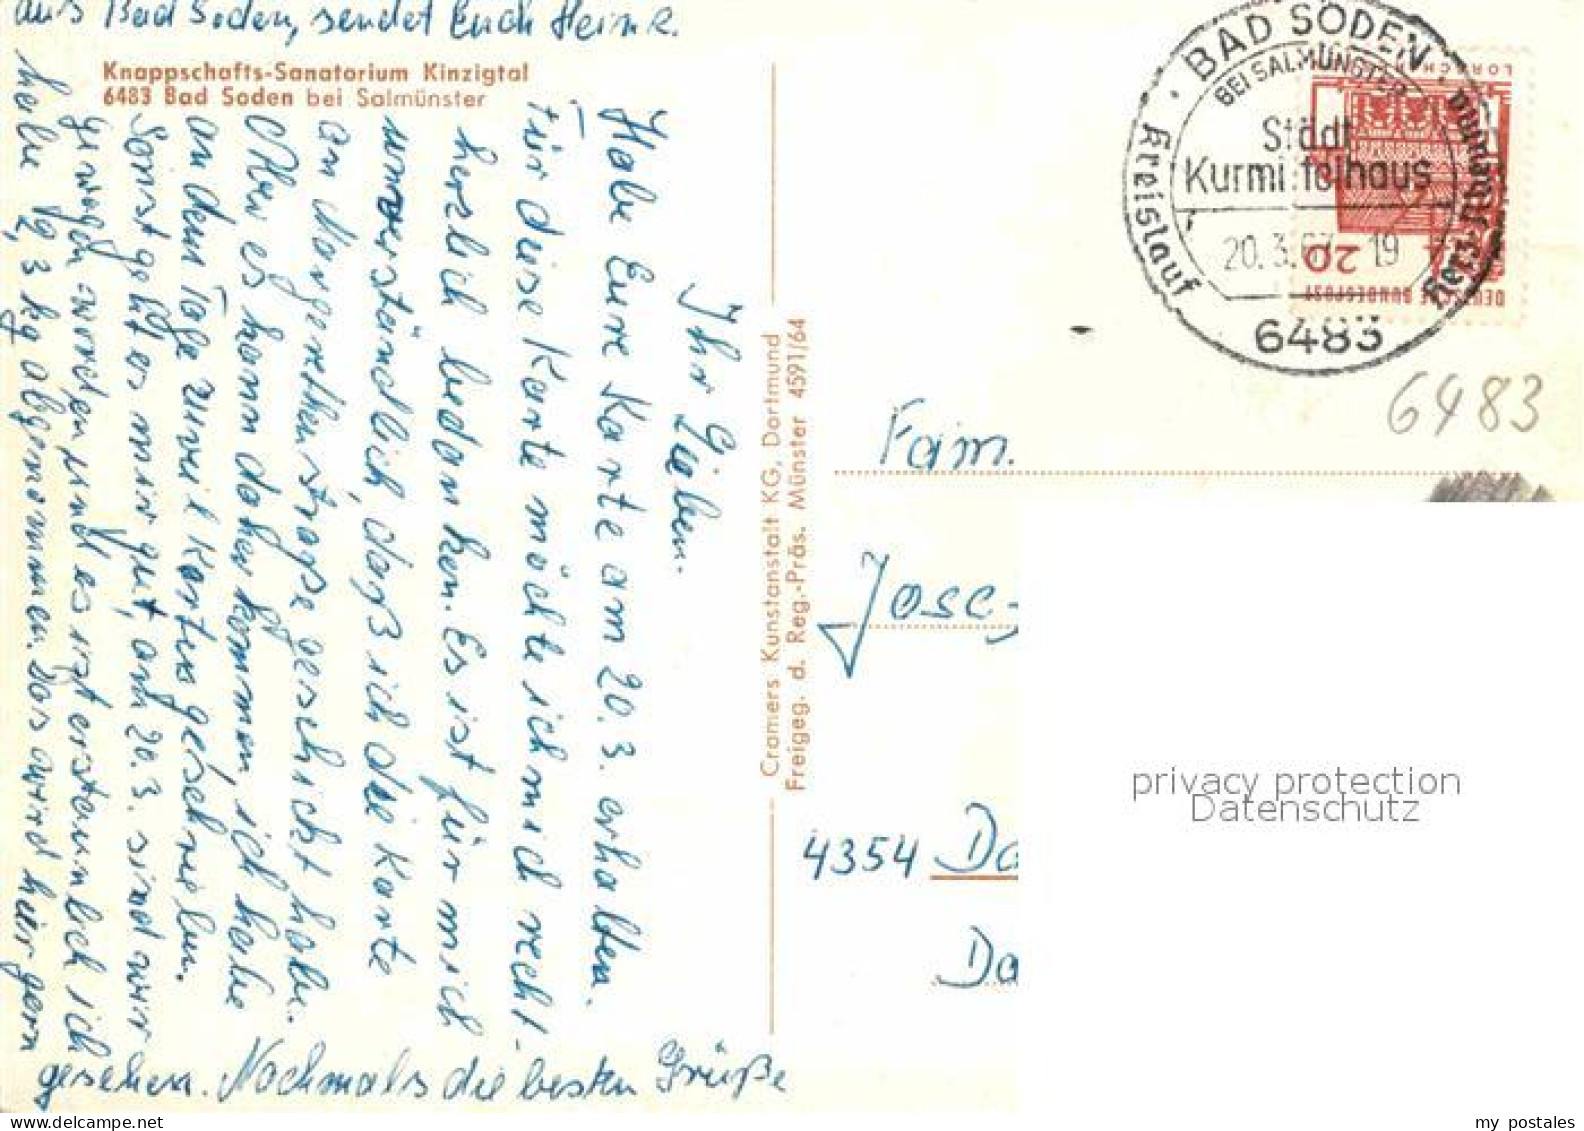 Knappschafts-Sanatorium Kinzigtal
6483 Bad Soden bei Salmünster
Ihr Lieben.
Habe Eure Karte am 20. 3. erhalten.
Für diese Karte möchte ich mich recht
herzlich bedanken. Es ist für mich
unverständlich, daß ich die Karte
an Margarethenstraße geschickt habe.
Aber es kann daher kommen, ich habe
an dem Tage zuviel Karten geschrieben.
Sonst geht es mir gut, am 20. 3. sind wir
gewogen worden und es ist erstaunlich ich
habe 2,3 kg abgenommen. Das wird hier gern
gesehen. Nochmals die besten Grüße
aus Bad Soden, sendet Euch
Cramers Kunstanstalt KG, Dortmund
Freigeg. d. Reg.-Präs. Münster 4591/64
BAD SODEN
BEI SALMÜNSTER
Städt
Kurmittelhaus
20. 3. 67 19
Kreislauf
6483
DEUTSCHE BUNDESPOST
20
LORSCH
6483
Fam.
Jose
4354 Da
Da
privacy protection
Datenschutz
my postales
www.delcampe.net